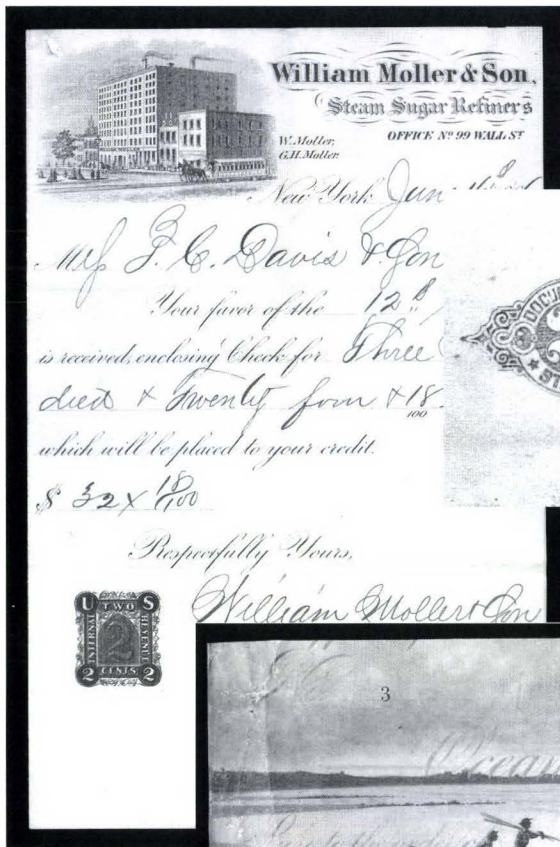 William Moller & Son,
Steam Sugar Refiners
OFFICE Nº 99 WALL ST
W. Moller,
G.H. Moller.
New York Jun
F. C. Davis & Son
Your favor of the 12
is received, enclosing Check for Three
dred & Twenty four & 18/100
which will be placed to your credit.
$ 32 18/100
Respectfully Yours,
William Moller & Son
U TWO S
INTERNAL 2 REVENUE
2 CENTS 2
DOCU
3
Ocean